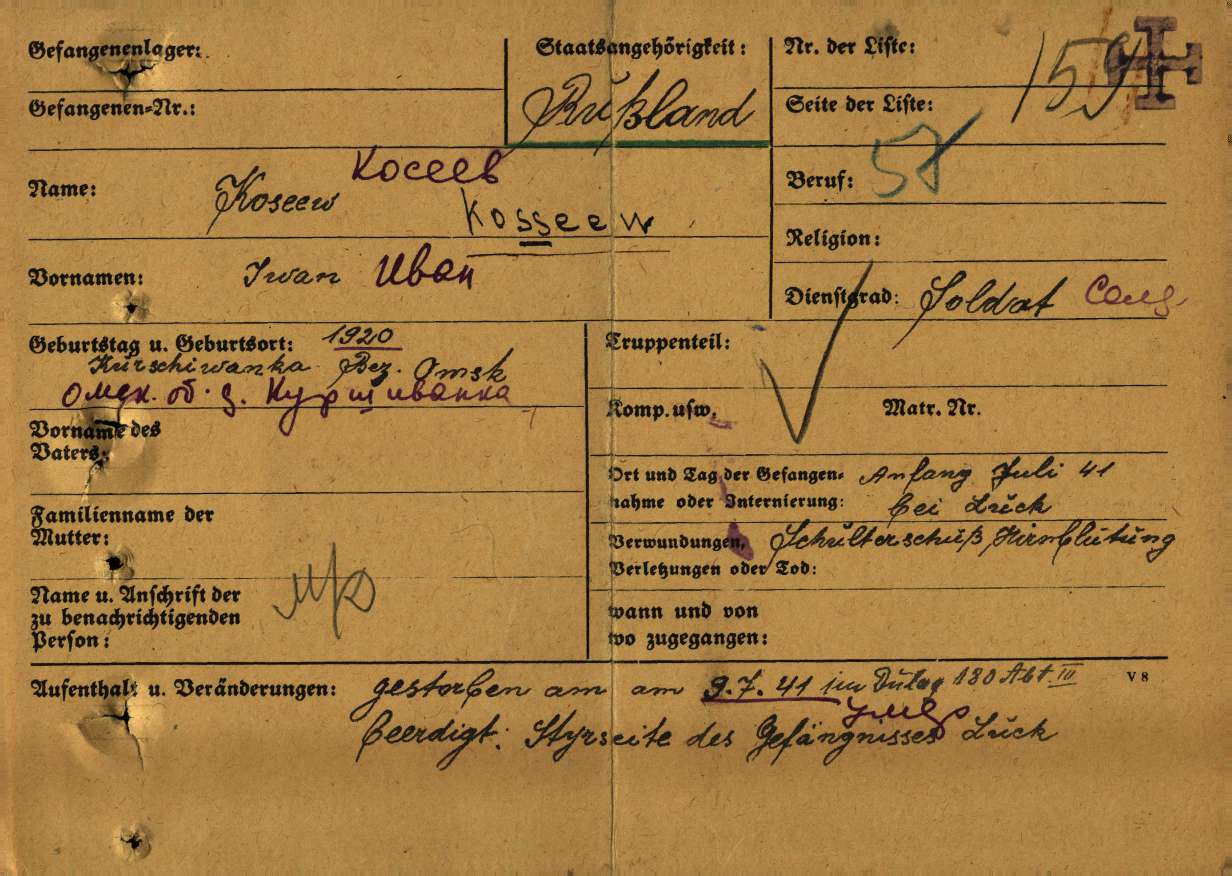 Gefangenenlager:
Staatsangehörigkeit:
Nr. der Liste:
159
Gefangenen-Nr.:
Rußland
Seite der Liste:
Name:
Koseew Косеев
Kosseew
Beruf:
57
Religion:
Vornamen:
Iwan Иван
Dienstgrad: Soldat Солд
Geburtstag u. Geburtsort: 1920
Kurschiwanka Bez. Omsk
Омск. об. д. Куршиванка
Truppenteil:
Komp. usw.
Matr. Nr.
Vorname des
Vaters:
Ort und Tag der Gefangen-
nahme oder Internierung:
Anfang Juli 41
bei Luck
Familienname der
Mutter:
Verwundungen,
Verletzungen oder Tod:
Schulterschuß, Hirnblutung
Name u. Anschrift der
zu benachrichtigenden
Person:
wann und von
wo zugegangen:
Aufenthalt u. Veränderungen: gestorben am am 9.7.41 im Dulag 180 Abt III
V 8
умер
beerdigt: Styrseite des Gefängnisses Luck